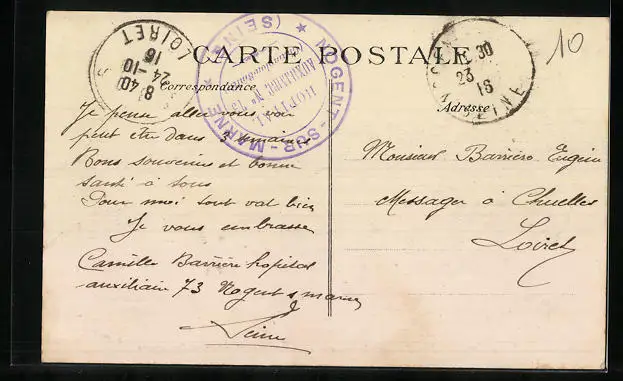 CARTE POSTALE
Correspondance
Adresse
Je pense aller vous voir
peut etre dans semaines
Bons souvenirs et bonne
santé à tous
Pour moi tout va bien
Je vous embrasse
Camille Barrière hopital
auxiliaire 73 Nogent s marne
Seine
Monsieur Barrière Eugène
Messager à Chuelles
Loiret
NOGENT-SUR-MARNE (SEINE)
HOPITAL
AUXILIAIRE N° 73
8 40
24-10
16
LOIRET
30
23
16
SEINE
10